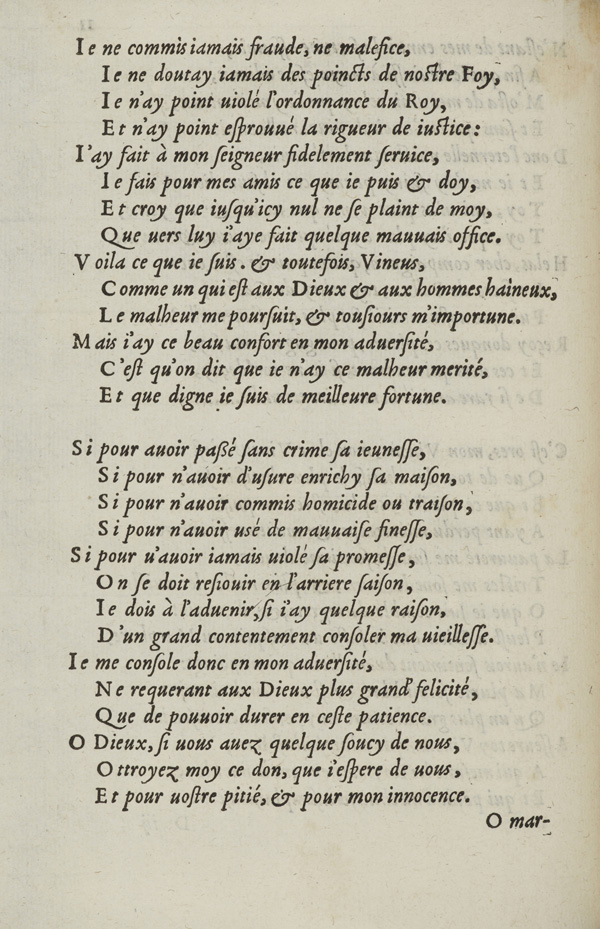 Ie ne commis iamais fraude, ne malefice,
Ie ne doutay iamais des poincts de noſtre Foy,
Ie n'ay point uiolé l'ordonnance du Roy,
Et n'ay point eſprouué la rigueur de iuſtice:
I'ay fait à mon ſeigneur fidelement ſeruice,
Ie fais pour mes amis ce que ie puis & doy,
Et croy que iuſqu'icy nul ne ſe plaint de moy,
Que uers luy i'aye fait quelque mauuais office.
Voila ce que ie ſuis. & toutefois, Vineus,
Comme un qui eſt aux Dieux & aux hommes haineux,
Le malheur me pourſuit, & touſiours m'importune.
Mais i'ay ce beau confort en mon aduerſité,
C'eſt qu'on dit que ie n'ay ce malheur merité,
Et que digne ie ſuis de meilleure fortune.
Si pour auoir paßé ſans crime ſa ieuneſſe,
Si pour n'auoir d'uſure enrichy ſa maiſon,
Si pour n'auoir commis homicide ou traiſon,
Si pour n'auoir usé de mauuaiſe fineſſe,
Si pour n'auoir iamais uiolé ſa promeſſe,
On ſe doit reſiouir en l'arriere ſaiſon,
Ie dois à l'aduenir, ſi i'ay quelque raiſon,
D'un grand contentement conſoler ma uieilleſſe.
Ie me conſole donc en mon aduerſité,
Ne requerant aux Dieux plus grand' felicité,
Que de pouuoir durer en ceſte patience.
O Dieux, ſi uous auez quelque ſoucy de nous,
Ottroyez moy ce don, que i'eſpere de uous,
Et pour uoſtre pitié, & pour mon innocence.
O mar-